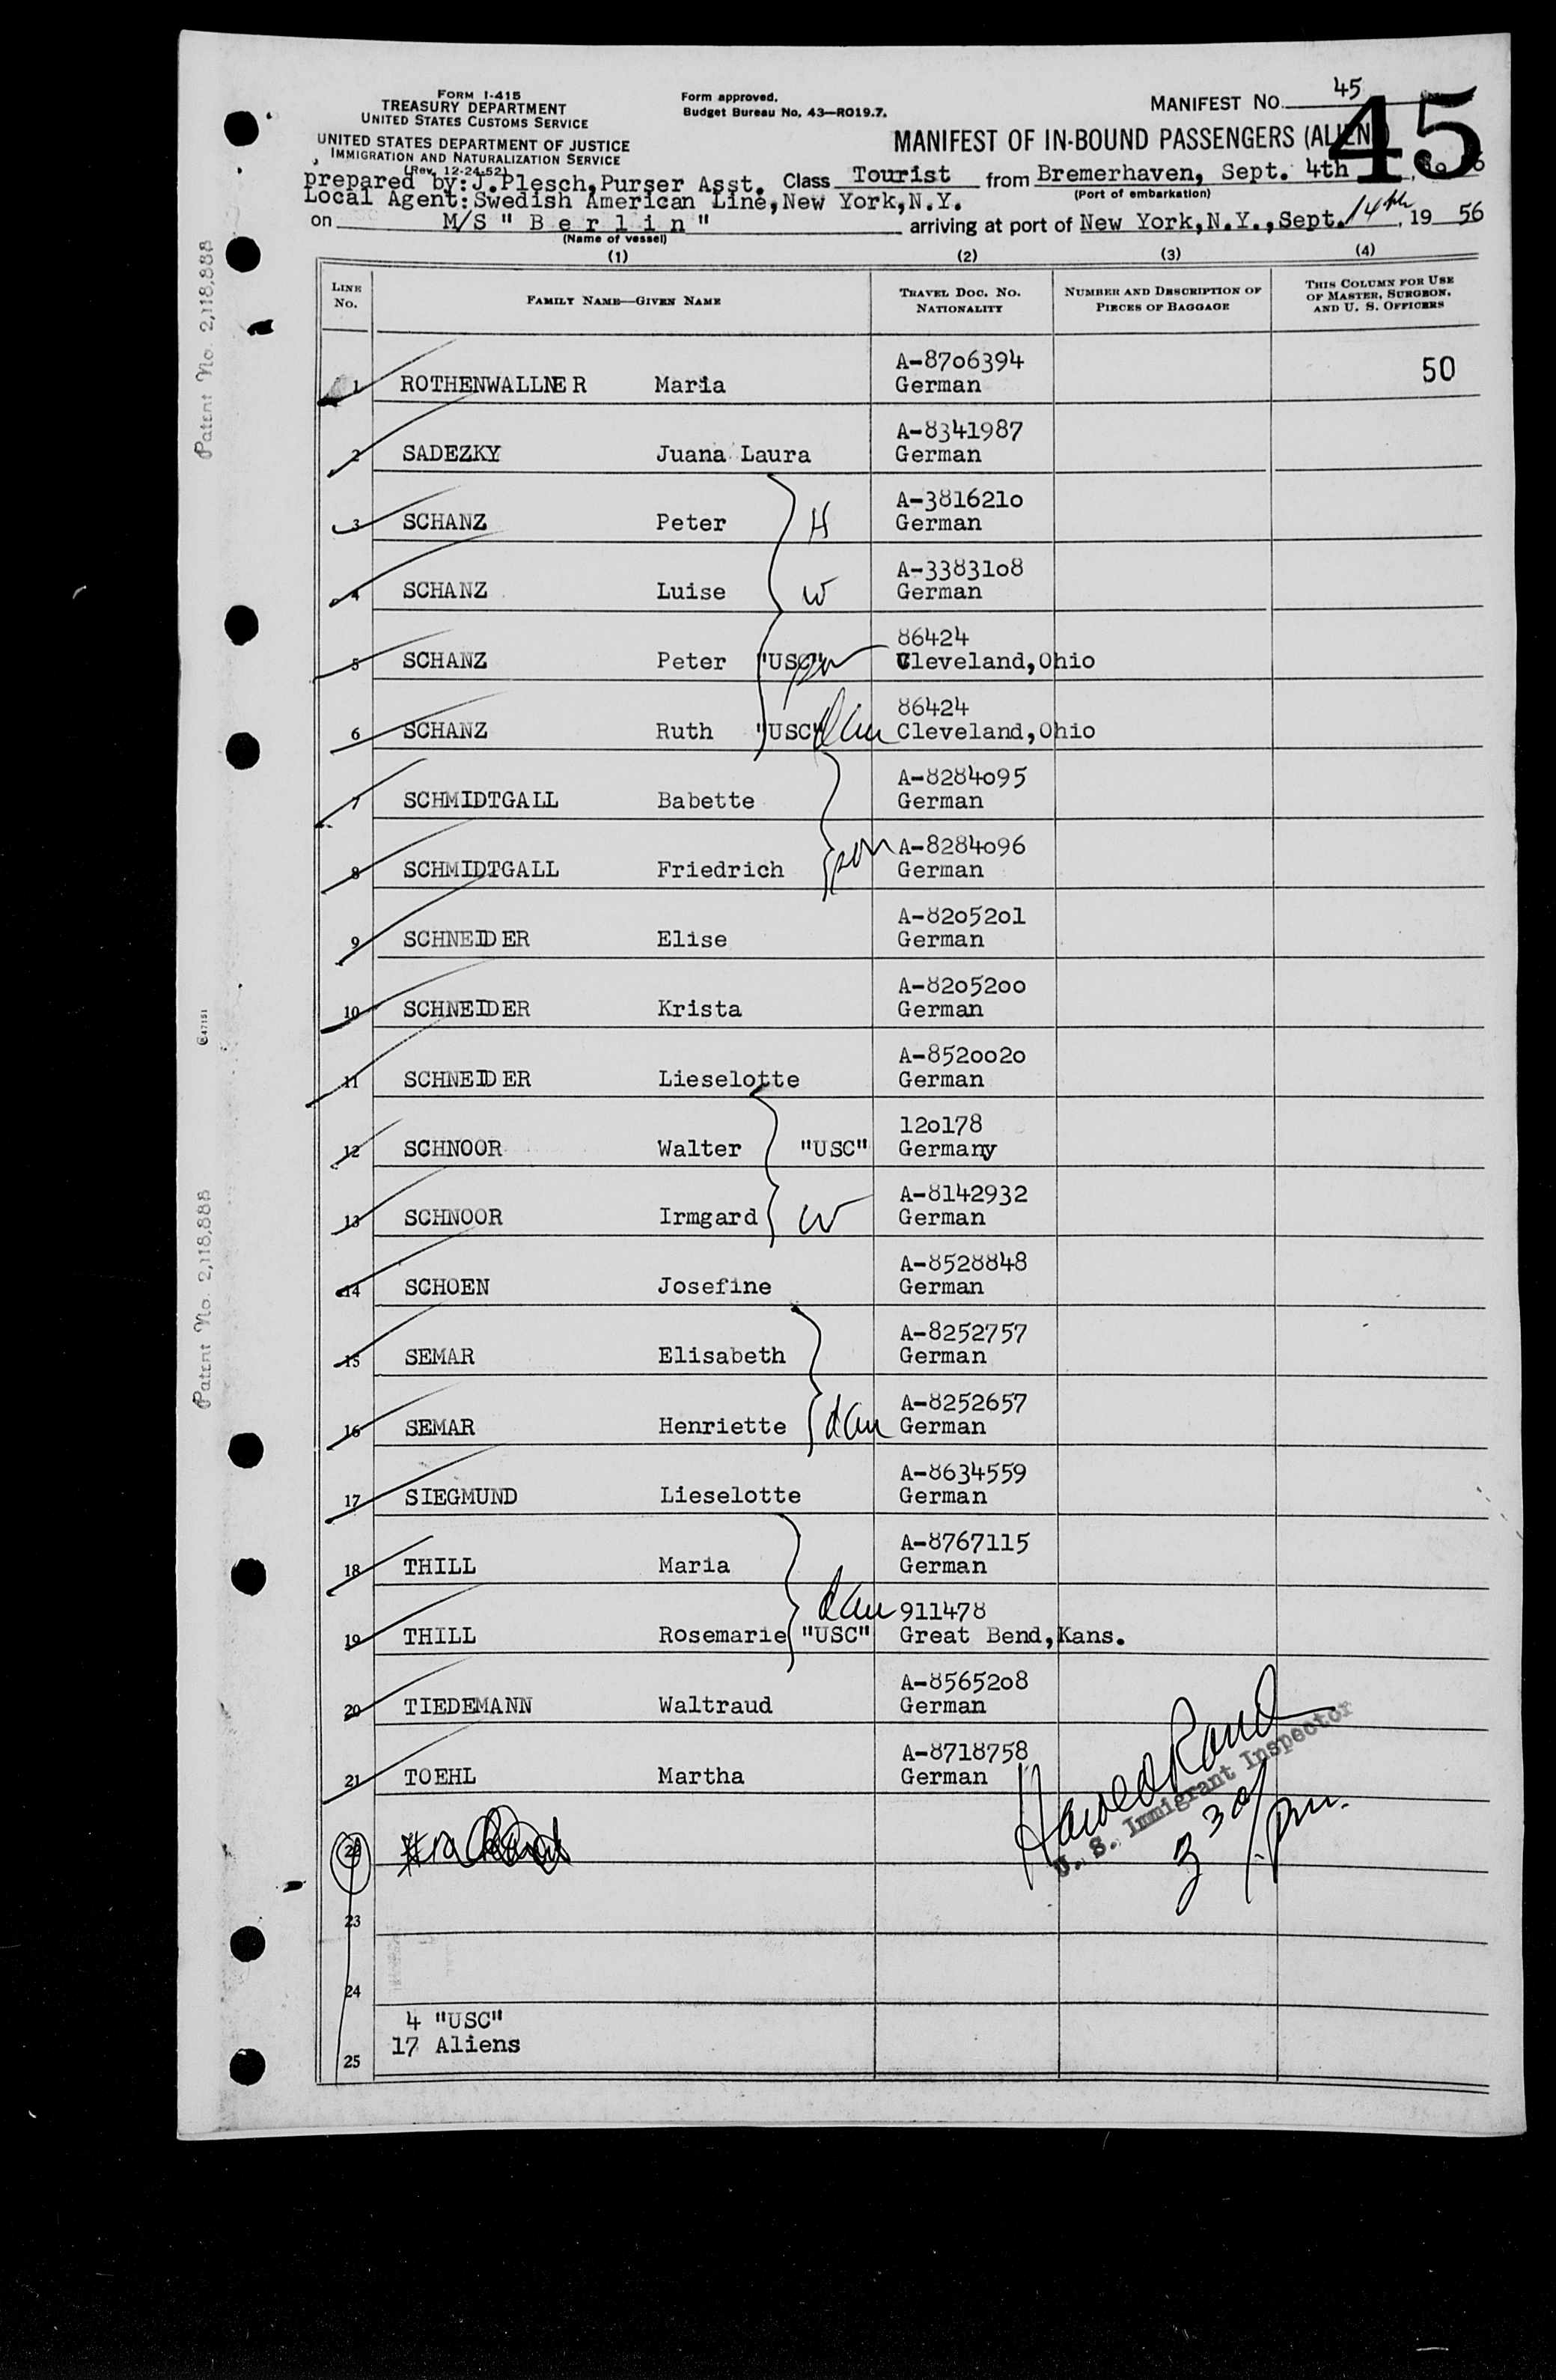 FORM I-415
TREASURY DEPARTMENT
UNITED STATES CUSTOMS SERVICE
UNITED STATES DEPARTMENT OF JUSTICE
IMMIGRATION AND NATURALIZATION SERVICE
(Rev. 12-24-52)
Form approved.
Budget Bureau No. 43—RO19.7.
MANIFEST NO. 45
45
MANIFEST OF IN-BOUND PASSENGERS (ALIEN)
prepared by: J.Plesch,Purser Asst. Class Tourist from Bremerhaven, Sept. 4th
(Port of embarkation)
Local Agent:Swedish American Line,New York,N.Y.
on M/S " B e r l i n " arriving at port of New York,N.Y.,Sept. 14th, 19 56
(Name of vessel)
(1) (2) (3) (4)
LINE No. FAMILY NAME—GIVEN NAME TRAVEL DOC. NO. NATIONALITY NUMBER AND DESCRIPTION OF PIECES OF BAGGAGE THIS COLUMN FOR USE OF MASTER, SURGEON, AND U. S. OFFICERS
A-8706394 50
1 ROTHENWALLNER Maria German
A-8341987
2 SADEZKY Juana Laura German
A-3816210
3 SCHANZ Peter H German
A-3383108
4 SCHANZ Luise W German
86424
5 SCHANZ Peter "USC" son Cleveland,Ohio
86424
6 SCHANZ Ruth "USC" dau Cleveland,Ohio
A-8284095
7 SCHMIDTGALL Babette German
A-8284096
8 SCHMIDTGALL Friedrich son German
A-8205201
9 SCHNEIDER Elise German
A-8205200
10 SCHNEIDER Krista German
A-8520020
11 SCHNEIDER Lieselotte German
120178
12 SCHNOOR Walter "USC" Germany
A-8142932
13 SCHNOOR Irmgard W German
A-8528848
14 SCHOEN Josefine German
A-8252757
15 SEMAR Elisabeth German
A-8252657
16 SEMAR Henriette dau German
A-8634559
17 SIEGMUND Lieselotte German
A-8767115
18 THILL Maria German
dau 911478
19 THILL Rosemarie "USC" Great Bend,Kans.
A-8565208
20 TIEDEMANN Waltraud German
A-8718758
21 TOEHL Martha German
U. S. Immigrant Inspector
3 30/pm.
22
23
24
4 "USC"
17 Aliens
25
Patent No. 2,118,888
C47151
Patent No. 2,118,888